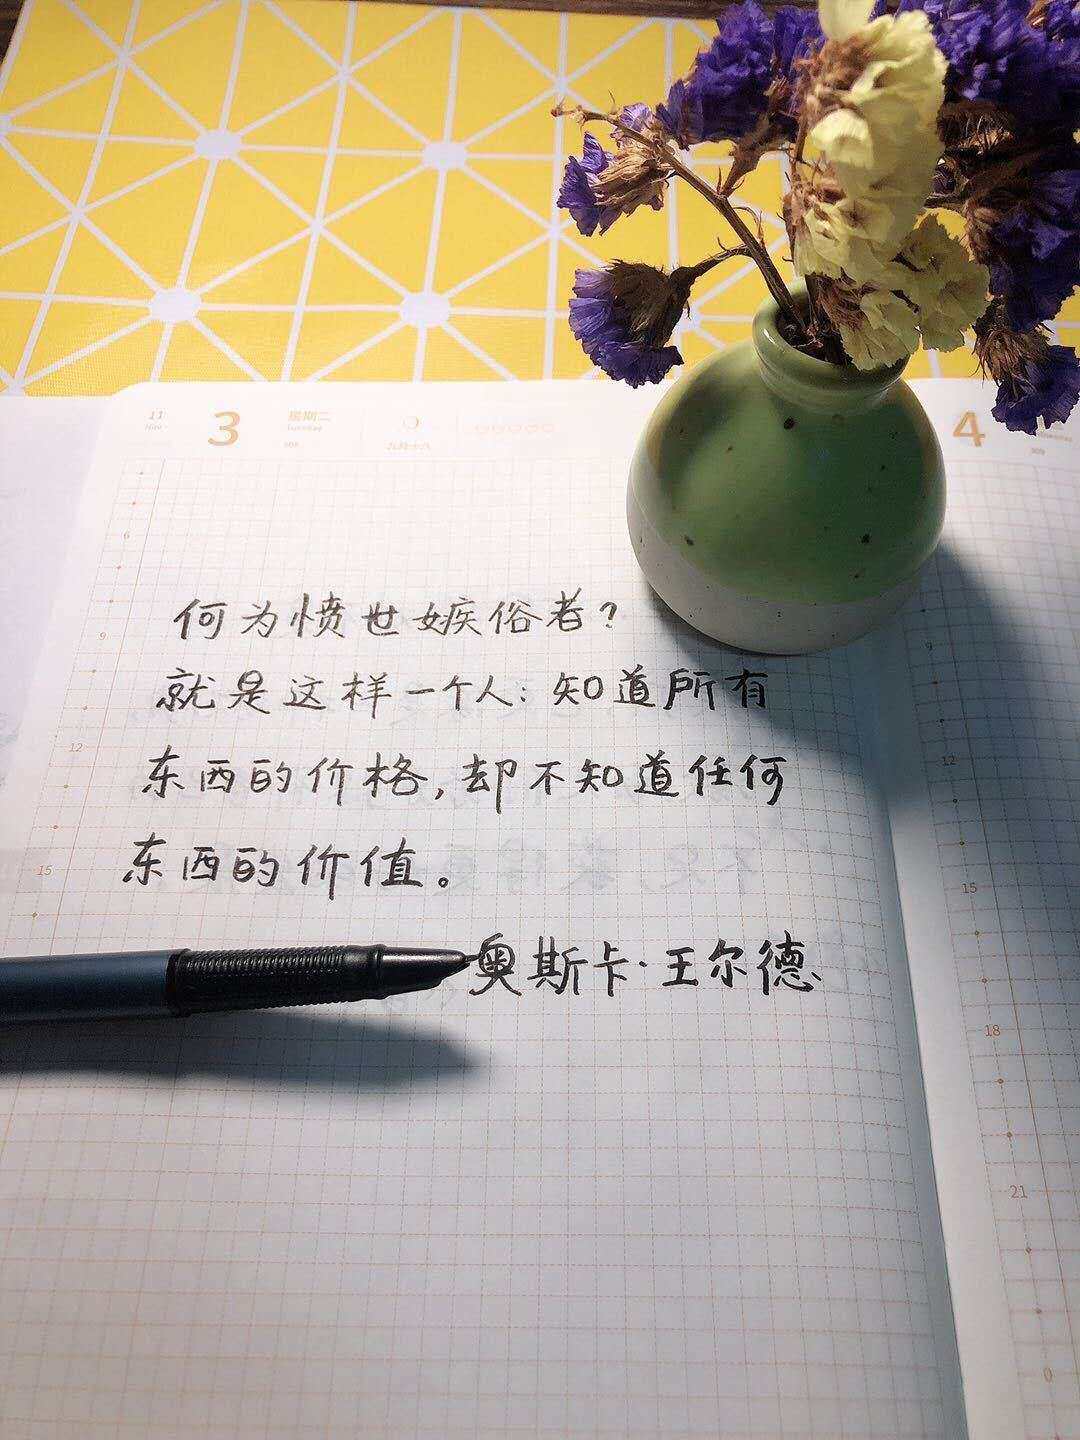 11
3
星期二
九月十八
4
6
9
12
15
9
12
15
18
21
0
何为愤世嫉俗者？
就是这样一个人：知道所有
东西的价格，却不知道任何
东西的价值。
奥斯卡·王尔德